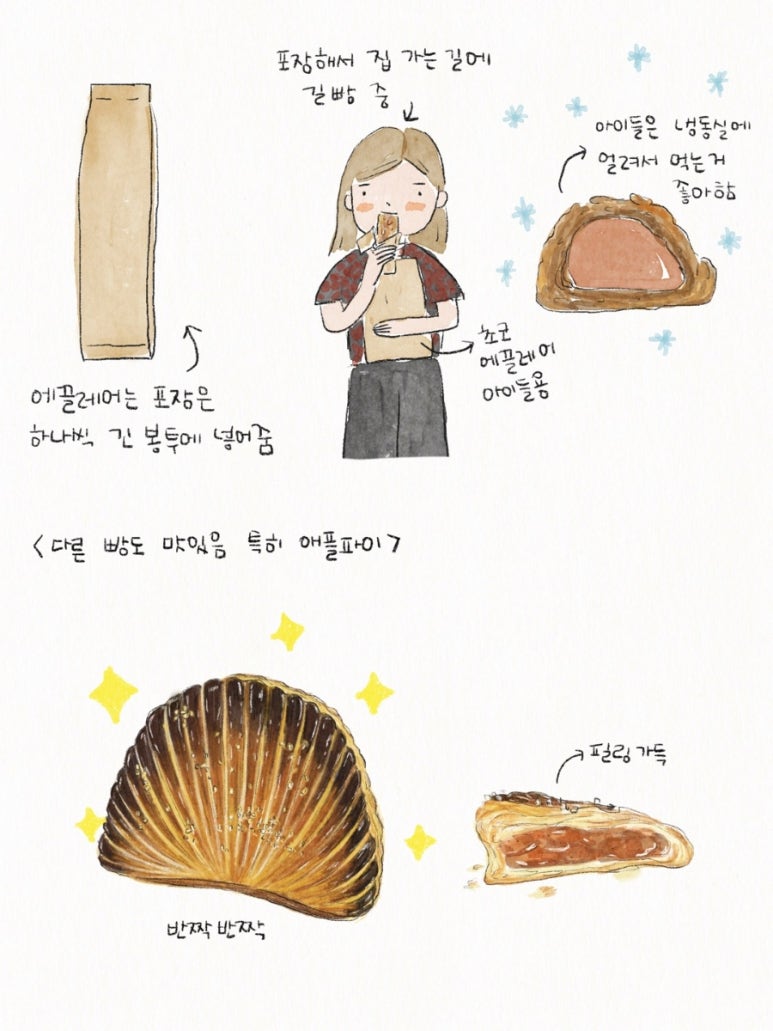 포장해서 집 가는 길에
길빵 중
아이들은 냉동실에
얼려서 먹는거
좋아함
초코
에끌레어
아이들용
에끌레어는 포장은
하나씩 긴 봉투에 넣어줌
<다른 빵도 맛있음 특히 애플파이>
필링 가득
반짝반짝